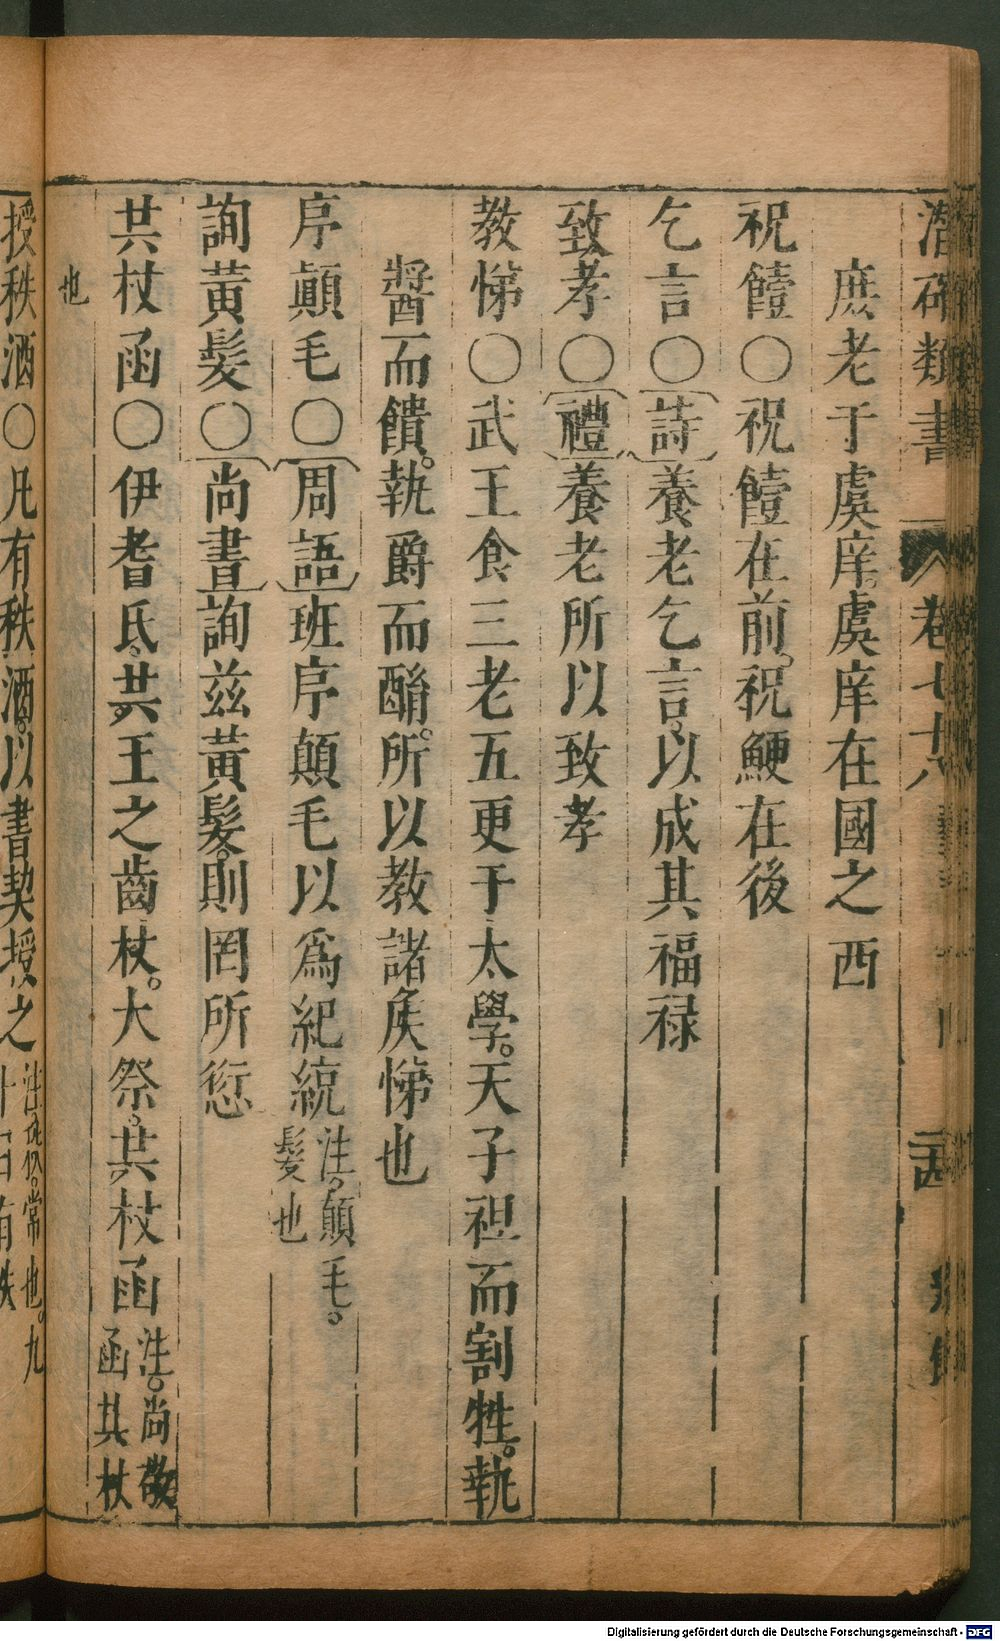 潛確類書 卷七十八 西
庶老于虞庠。虞庠在國之西
祝饐○祝饐在前。祝鯁在後
乞言○詩養老乞言。以成其福禄
致孝○禮養老所以致孝
教悌○武王食三老五更于太學。天子袒而割牲。執
醬而饋。執爵而酳。所以教諸矦悌也
序顚毛○周語班序顚毛以爲紀統注。顚毛。
髮也
詢黃髮○尚書詢兹黃髮。則罔所愆
共杖函○伊耆氏。共王之齒杖。大祭。共杖函注。尚敬
函其杖
也
授秩酒○凡有秩酒。以書契授之
常也。九
Digitalisierung gefördert durch die Deutsche Forschungsgemeinschaft - DFG